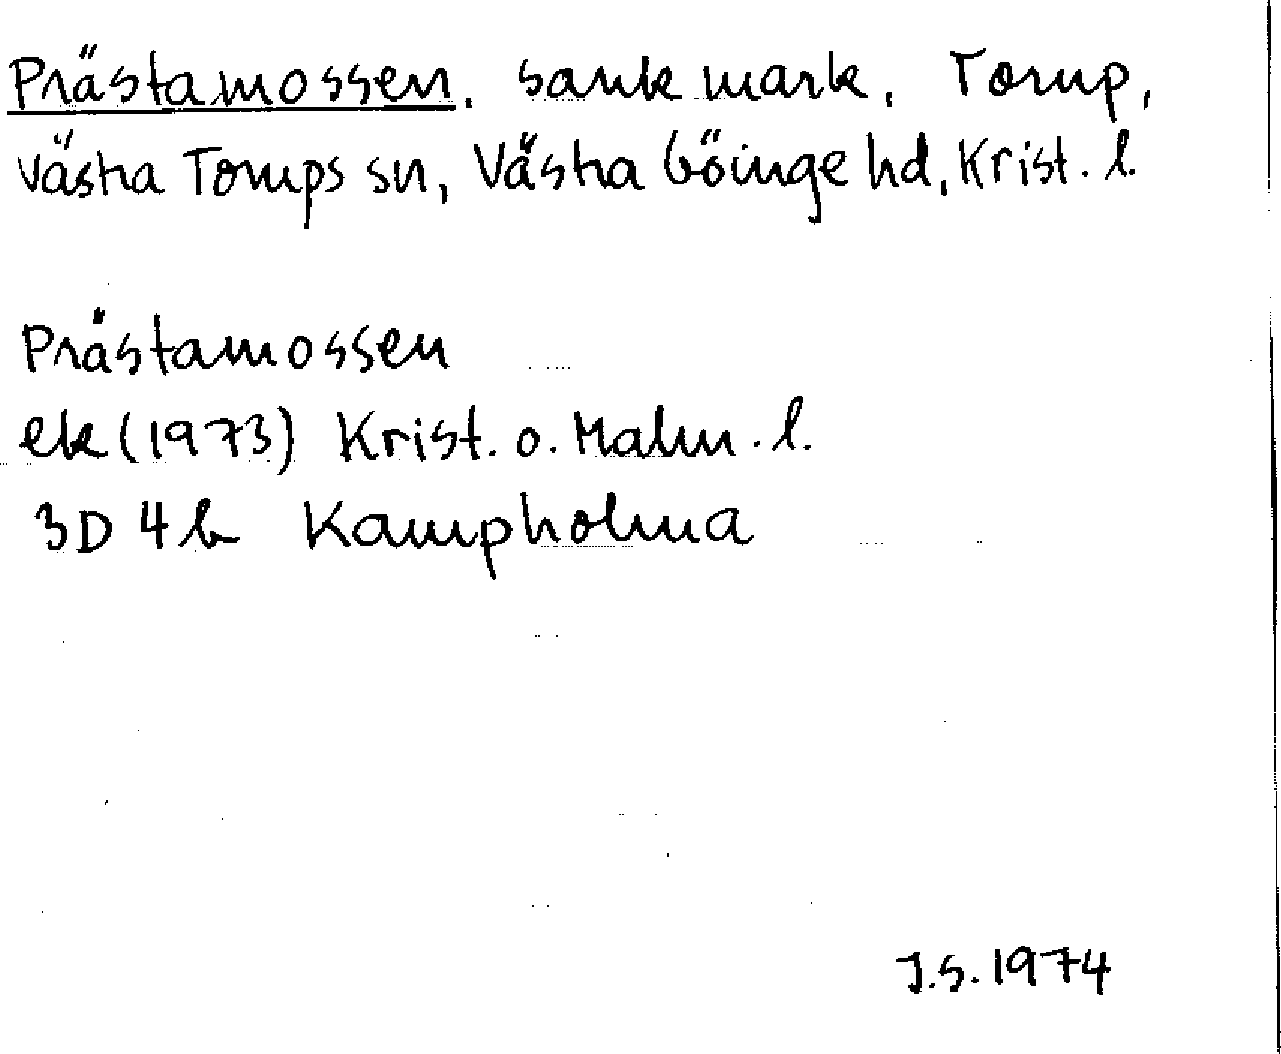 Prästamossen. sank mark, Torup,
Västra Torups sn, Västra Göinge hd, Krist. l.
Prästamossen
ek (1973) Krist. o. Malm. l.
3D 4b Kampholma
J.S. 1974